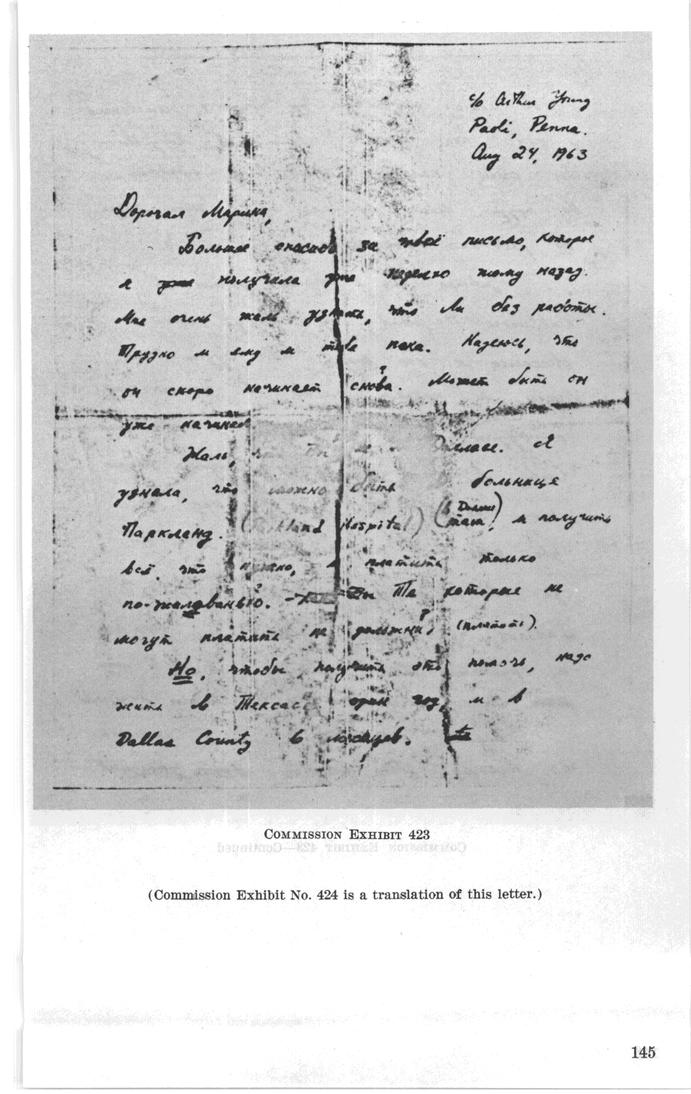 c/o Arthur Young
Paoli, Penna.
Aug 24, 1963
Дорогая Марина,
Большое спасибо за твоё письмо, которое
я получила уже неделю тому назад.
Мне очень жаль узнать, что Ли без работы.
Трудно и ему и тебе пока. Надеюсь, что
он скоро начинает снова.? Может быть он
уже
Жаль, что ты не в Далласе. Я
узнала, что можно быть больнице
Паркланд. (Parkland Hospital) (в Далласе) там, и получить
всё что нужно, и платить только
по-жалованью?. Те которые не
могут платить не должны? (платить).
Но, чтобы получить эту помощь, надо
жить в Тексасе один год, и в
Dallas County 6 месяцев.
COMMISSION EXHIBIT 423
(Commission Exhibit No. 424 is a translation of this letter.)
145